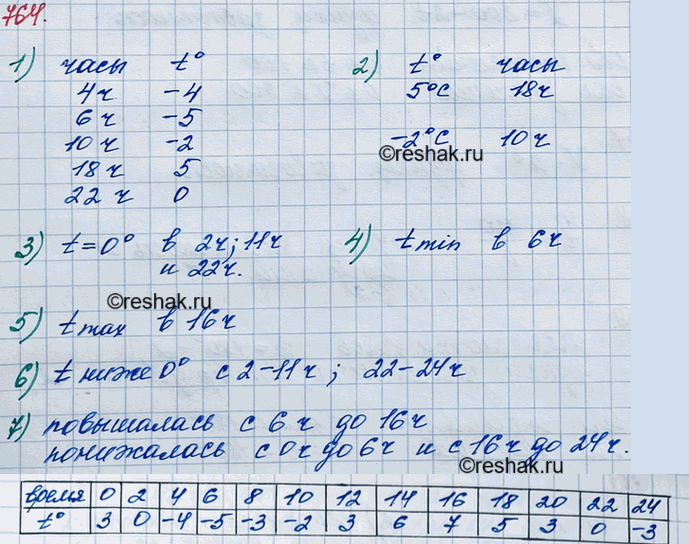 764.
1) часы t° 2) t° часы
4ч -4 5°C 18ч
6ч -5
10ч -2 -2°C 10ч
©reshak.ru
18ч 5
22ч 0
3) t=0° в 2ч; 11ч 4) tmin в 6ч
и 22ч.
©reshak.ru
5) tmax в 16ч
6) t ниже 0° с 2-11ч ; 22-24ч
7) повышалась с 6ч до 16ч
понижалась с 0ч до 6ч и с 16ч до 24ч.
©reshak.ru
время 0 2 4 6 8 10 12 14 16 18 20 22 24
t° 3 0 -4 -5 -3 -2 3 6 7 5 3 0 -3